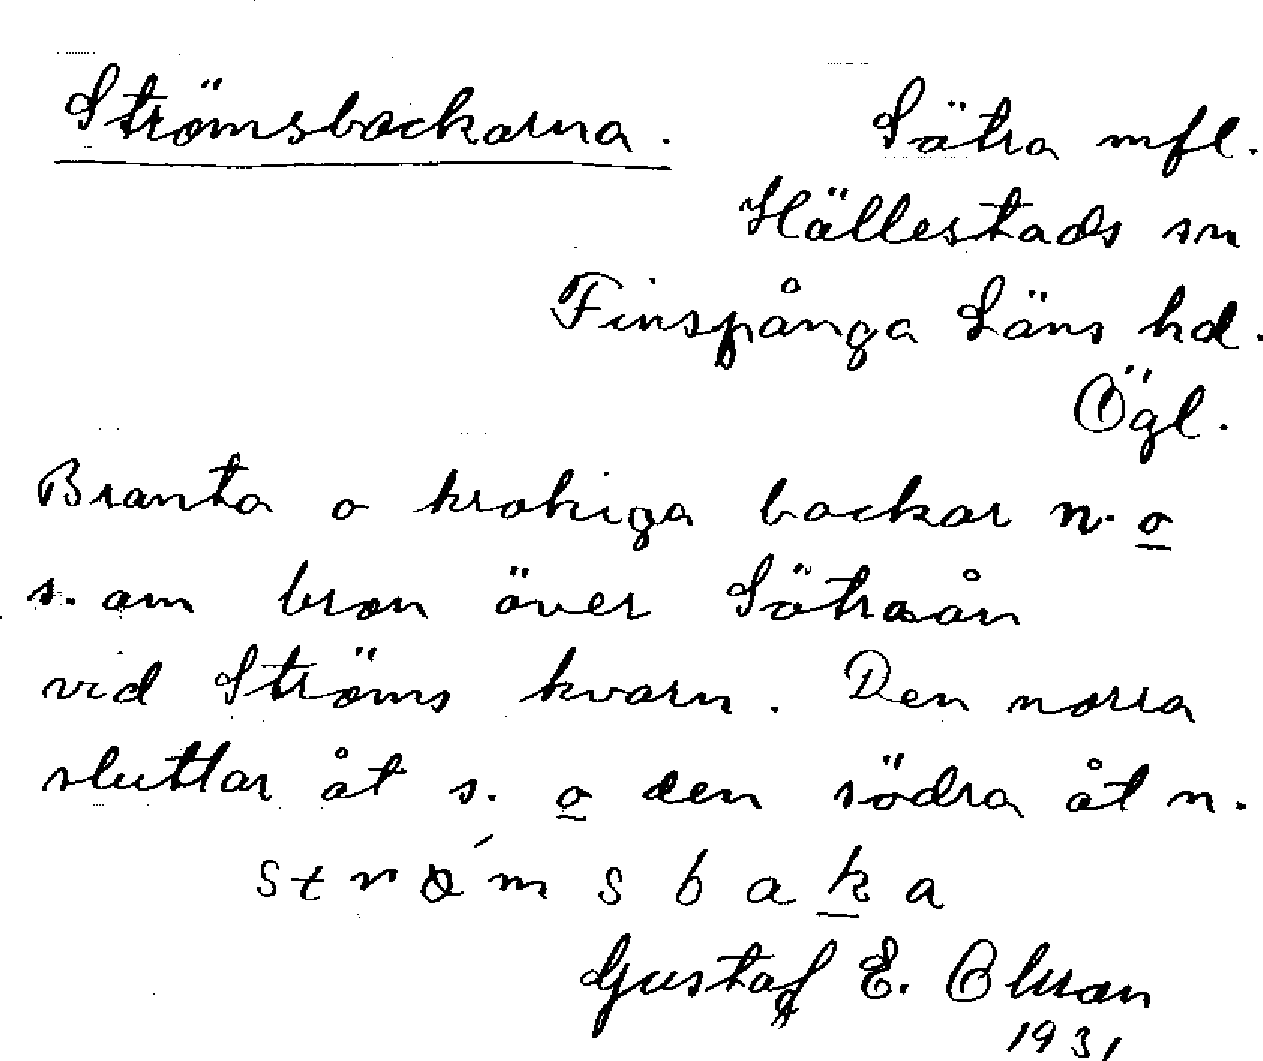 Strömsbackarna.
Sätra mfl.
Hällestads sn
Finspånga Läns hd.
Ögl.
Branta o krokiga backar n. o
s. om bron över Sätraån
vid Ströms kvarn. Den norra
sluttar åt s. o den södra åt n.
strø´msbaka
Gustaf E. Olsson
1931